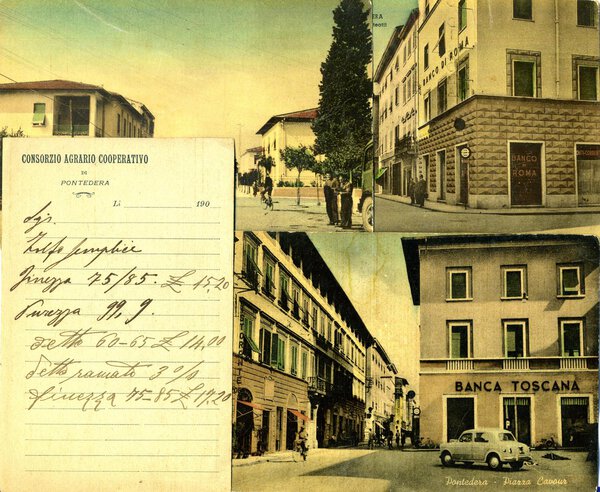 CONSORZIO AGRARIO COOPERATIVO
DI
PONTEDERA
Lì 190
Sigr.
Zolfo semplice
finezza 75/85 £ 15,20
Purezza 99,9
detto 60-65 £ 14,00
detto ramato 3%
finezza 75-85 £ 17,20
BANCO DI ROMA
BANCO
DI
ROMA
BANCA TOSCANA
Pontedera - Piazza Cavour